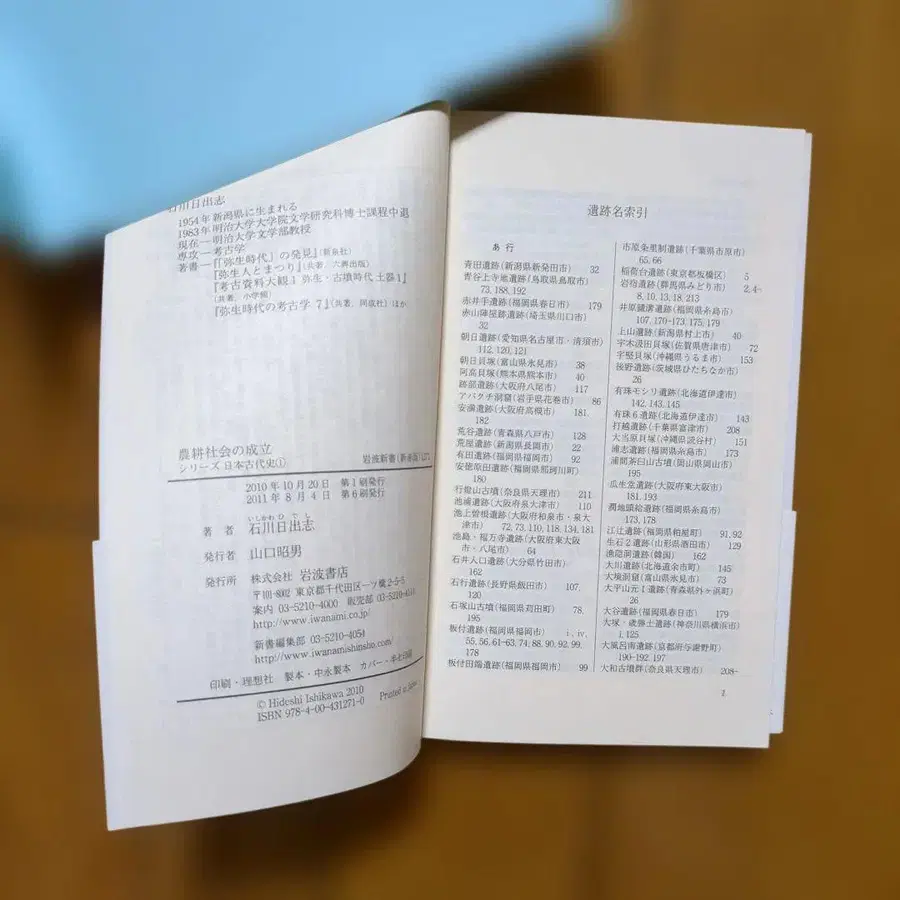 石川日出志
1954年新潟県に生まれる
1983年明治大学大学院文学研究科博士課程中退
現在―明治大学文学部教授
専攻―考古学
著書―『「弥生時代」の発見』(新泉社)
『弥生人とまつり』(共著,六興出版)
『考古資料大観1 弥生・古墳時代 土器1』
(共著,小学館)
『弥生時代の考古学 7』(共著,同成社)ほか
農耕社会の成立
シリーズ 日本古代史①
岩波新書(新赤版)1271
2010年10月20日 第1刷発行
2011年8月4日 第6刷発行
いしかわひでし
著者 石川日出志
発行者 山口昭男
発行所 株式会社 岩波書店
〒101-8002 東京都千代田区一ツ橋2-5-5
案内 03-5210-4000 販売部 03-5210-4111
http://www.iwanami.co.jp/
新書編集部 03-5210-4054
http://www.iwanamishinsho.com/
印刷・理想社 製本・中永製本 カバー・半七印刷
© Hideshi Ishikawa 2010
ISBN 978-4-00-431271-0 Printed in Japan
遺跡名索引
あ行
青田遺跡(新潟県新発田市) 32
青谷上寺地遺跡(鳥取県鳥取市)
73,188,192
赤井手遺跡(福岡県春日市) 179
赤山陣屋跡遺跡(埼玉県川口市)
32
朝日遺跡(愛知県名古屋市・清須市)
112,120,121
朝日貝塚(富山県氷見市) 38
阿高貝塚(熊本県熊本市) 40
跡部遺跡(大阪府八尾市) 117
アバクチ洞窟(岩手県花巻市) 86
安満遺跡(大阪府高槻市) 181,
182
荒谷遺跡(青森県八戸市) 128
荒屋遺跡(新潟県長岡市) 22
有田遺跡(福岡県福岡市) 92
安徳台遺跡(福岡県那珂川町)
180
行燈山古墳(奈良県天理市) 211
池浦遺跡(大阪府泉大津市) 110
池上曽根遺跡(大阪府和泉市・泉大
津市) 72,73,110,118,134,181
池島・福万寺遺跡(大阪府東大阪
市・八尾市) 64
石井入口遺跡(大分県竹田市)
162
石行遺跡(長野県飯田市) 107,
120
石塚山古墳(福岡県苅田町) 78,
195
板付遺跡(福岡県福岡市) i, iv,
55,56,61-63,74,88,90,92,99,
178
板付田端遺跡(福岡県福岡市) 99
市原条里制遺跡(千葉県市原市)
65,66
稲荷台遺跡(東京都板橋区) 5
岩宿遺跡(群馬県みどり市) 2,4-
8,10,13,18,213
井原鑓溝遺跡(福岡県糸島市)
107,170-173,175,179
上山遺跡(新潟県村上市) 40
宇木汲田貝塚(佐賀県唐津市) 72
宇堅貝塚(沖縄県うるま市) 153
後野遺跡(茨城県ひたちなか市)
26
有珠モシリ遺跡(北海道伊達市)
142,143,145
有珠6遺跡(北海道伊達市) 143
打越遺跡(千葉県富津市) 208
大当原貝塚(沖縄県読谷村) 151
浦志遺跡(福岡県糸島市) 173
浦間茶臼山古墳(岡山県岡山市)
195
瓜生堂遺跡(大阪府東大阪市)
181,193
潤地頭給遺跡(福岡県糸島市)
173,178
江辻遺跡(福岡県粕屋町) 91,92
生石2遺跡(山形県酒田市) 129
漁隠洞遺跡(韓国) 162
大川遺跡(北海道余市町) 145
大境洞窟(富山県氷見市) 73
大平山元Ⅰ遺跡(青森県外ヶ浜町)
26
大谷遺跡(福岡県春日市) 179
大塚・歳勝土遺跡(神奈川県横浜市)
i, 125
大風呂南遺跡(京都府与謝野町)
190-192,197
大和古墳群(奈良県天理市) 208-
1